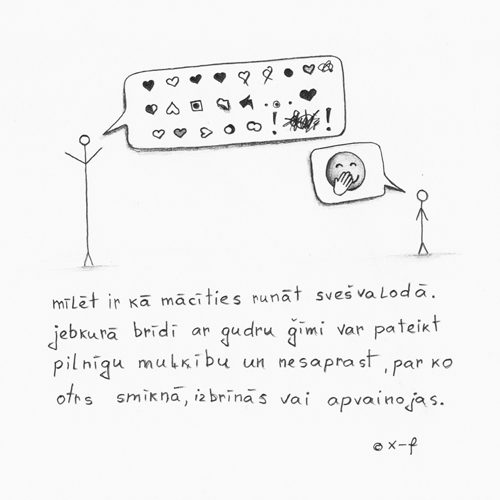 mīlēt ir kā mācīties runāt svešvalodā.
jebkurā brīdī ar gudru ģīmi var pateikt
pilnīgu muļķību un nesaprast, par ko
otrs smīkņā, izbrīnās vai apvainojas.
x-f